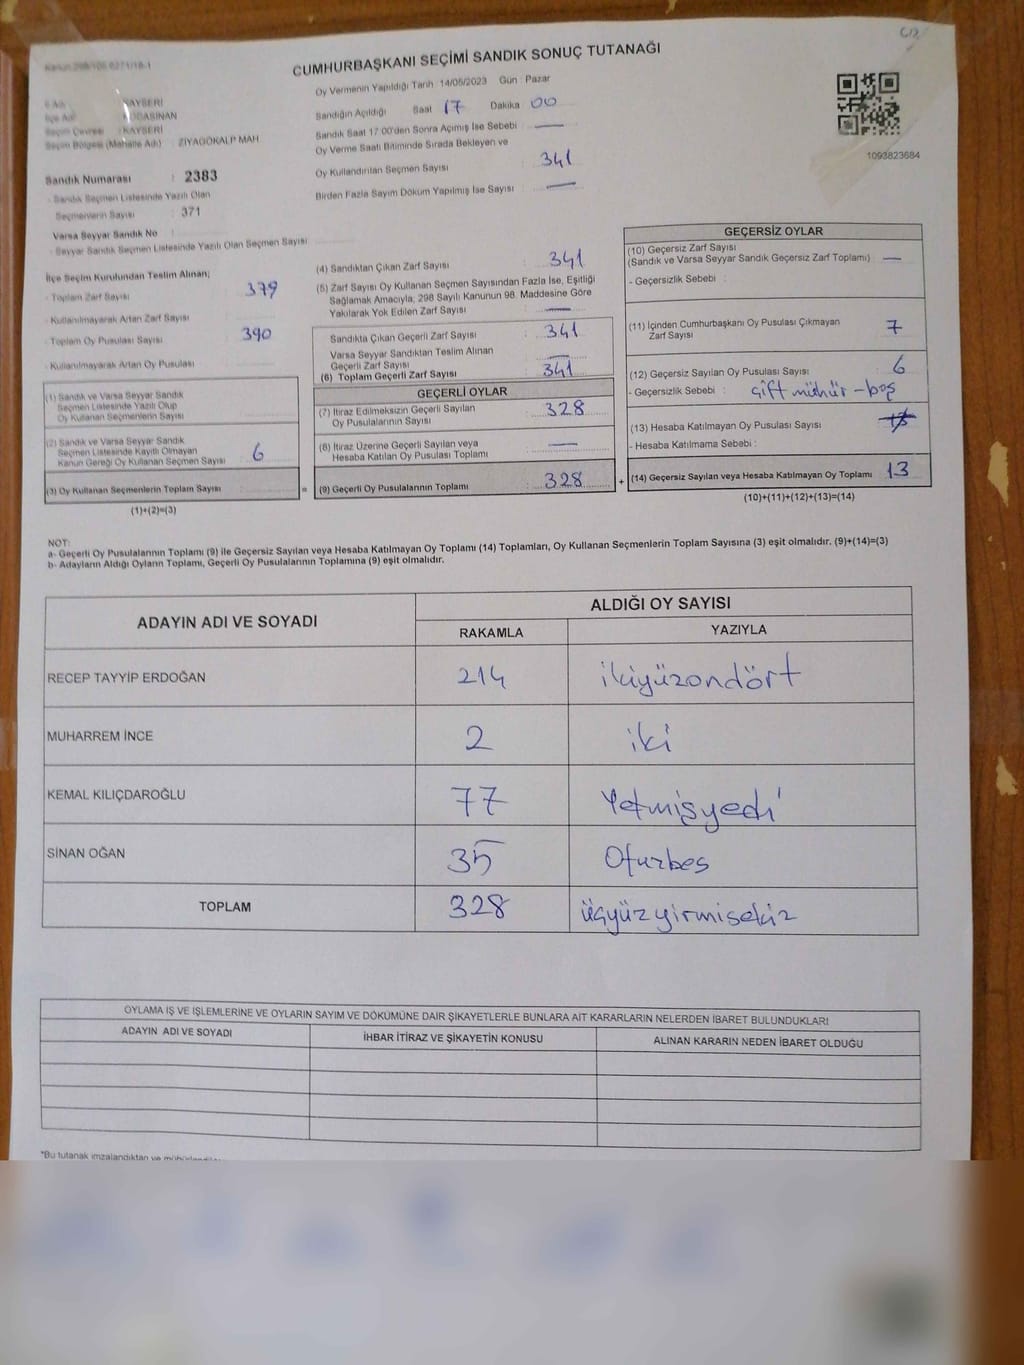 612
CUMHURBAŞKANI SEÇİMİ SANDIK SONUÇ TUTANAĞI
Oy Vermenin Yapıldığı Tarih 14/05/2023 Gün : Pazar
Sandığın Açıldığı Saat 17 Dakika 00
Sandık Saat 17:00'den Sonra Açımış İse Sebebi —
Oy Verme Saati Bitiminde Sırada Bekleyen ve
Oy Kullandırılan Seçmen Sayısı 341
Birden Fazla Sayım Döküm Yapılmış İse Sayısı —
1093823684
KAYSERİ
KOCASİNAN
Seçim Çevresi : KAYSERİ
Seçim Bölgesi (Mahalle Adı) ZİYAGÖKALP MAH
Sandık Numarası : 2383
- Sandık Seçmen Listesinde Yazılı Olan
Seçmenlerin Sayısı : 371
Varsa Seyyar Sandık No :
- Seyyar Sandık Seçmen Listesinde Yazılı Olan Seçmen Sayısı
İlçe Seçim Kurulundan Teslim Alınan;
- Toplam Zarf Sayısı 379
- Kullanılmayarak Artan Zarf Sayısı
- Toplam Oy Pusulası Sayısı 390
- Kullanılmayarak Artan Oy Pusulası
(1) Sandık ve Varsa Seyyar Sandık
Seçmen Listesinde Yazılı Olup
Oy Kullanan Seçmenlerin Sayısı
(2) Sandık ve Varsa Seyyar Sandık
Seçmen Listesinde Kayıtlı Olmayan
Kanun Gereği Oy Kullanan Seçmen Sayısı 6
(3) Oy Kullanan Seçmenlerin Toplam Sayısı =
(1)+(2)=(3)
(4) Sandıktan Çıkan Zarf Sayısı 341
(5) Zarf Sayısı Oy Kullanan Seçmen Sayısından Fazla İse, Eşitliği
Sağlamak Amacıyla, 298 Sayılı Kanunun 98. Maddesine Göre
Yakılarak Yok Edilen Zarf Sayısı —
Sandıkta Çıkan Geçerli Zarf Sayısı 341
Varsa Seyyar Sandıktan Teslim Alınan
Geçerli Zarf Sayısı —
(6) Toplam Geçerli Zarf Sayısı 341
GEÇERLİ OYLAR
(7) İtiraz Edilmeksizin Geçerli Sayılan
Oy Pusulalarının Sayısı 328
(8) İtiraz Üzerine Geçerli Sayılan veya
Hesaba Katılan Oy Pusulası Toplamı —
(9) Geçerli Oy Pusulalarının Toplamı 328 +
GEÇERSİZ OYLAR
(10) Geçersiz Zarf Sayısı
(Sandık ve Varsa Seyyar Sandık Geçersiz Zarf Toplamı) —
- Geçersizlik Sebebi :
(11) İçinden Cumhurbaşkanı Oy Pusulası Çıkmayan
Zarf Sayısı 7
(12) Geçersiz Sayılan Oy Pusulası Sayısı 6
- Geçersizlik Sebebi : çift mühür - boş
(13) Hesaba Katılmayan Oy Pusulası Sayısı
- Hesaba Katılmama Sebebi :
(14) Geçersiz Sayılan veya Hesaba Katılmayan Oy Toplamı 13
(10)+(11)+(12)+(13)=(14)
NOT:
a- Geçerli Oy Pusulalarının Toplamı (9) ile Geçersiz Sayılan veya Hesaba Katılmayan Oy Toplamı (14) Toplamları, Oy Kullanan Seçmenlerin Toplam Sayısına (3) eşit olmalıdır. (9)+(14)=(3)
b- Adayların Aldığı Oyların Toplamı, Geçerli Oy Pusulalarının Toplamına (9) eşit olmalıdır.
ADAYIN ADI VE SOYADI ALDIĞI OY SAYISI
RAKAMLA YAZIYLA
RECEP TAYYİP ERDOĞAN 214 ikiyüzondört
MUHARREM İNCE 2 iki
KEMAL KILIÇDAROĞLU 77 Yetmişyedi
SİNAN OĞAN 35 Oturbeş
TOPLAM 328 üçyüzyirmisekiz
OYLAMA İŞ VE İŞLEMLERİNE VE OYLARIN SAYIM VE DÖKÜMÜNE DAİR ŞİKAYETLERLE BUNLARA AİT KARARLARIN NELERDEN İBARET BULUNDUKLARI
ADAYIN ADI VE SOYADI İHBAR İTİRAZ VE ŞİKAYETİN KONUSU ALINAN KARARIN NEDEN İBARET OLDUĞU
*Bu tutanak imzalandıktan ve